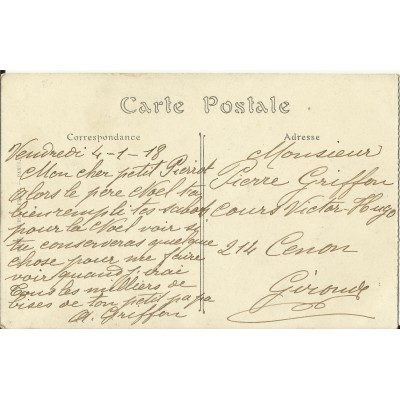 Carte Postale
Correspondance
Adresse
Vendredi 4-1-18
Mon cher petit Pierrot
Alors le père Noel t'a
bien rempli tes sabots
pour la Noel voir si
tu conserveras quelque
chose pour me faire
voir quand j'irai
Tous les milliers de
bises de ton petit papa
A. Griffon
Monsieur
Pierre Griffon
cours Victor Hugo
214 Cenon
Gironde